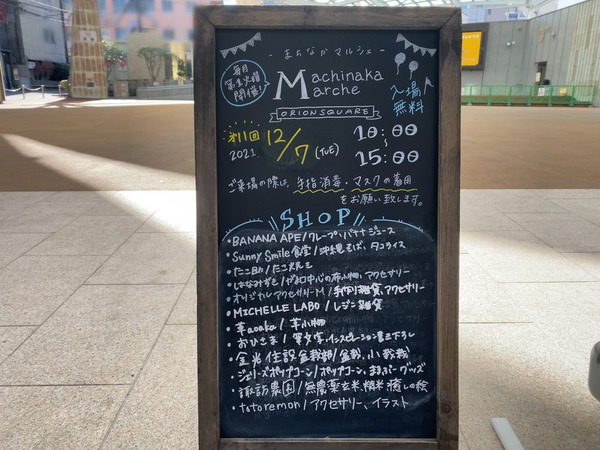 - まちなかマルシェー -
毎月
第1火曜
開催!
Machinaka
Marche
ORIONSQUARE
入場
無料
第11回
2021
12/7(TUE)
10:00
~
15:00
ご来場の際は、手指消毒・マスクの着用
をお願い致します。
SHOP
・BANANA APE/クレープ・バナナジュース
・Sunny Smile 食堂/沖縄そば、タコライス
・たこ助/たこ焼き
・はなみずき/やよい中心の布小物、アクセサリー
・オリジナルアクセサリーM/手作り雑貨、アクセサリー
・MICHELLE LABO/レジン雑貨
・革aoaka/革小物
・おひさま/筆文字、インスピレーション書き下ろし
・金光住設盆栽部/盆栽、小鉢栽
・ジェリーズポップコーン/ポップコーン、まるぷーグッズ
・諏訪農園/無農薬玄米、精米 癒しの絵
・totoremon/アクセサリー、イラスト